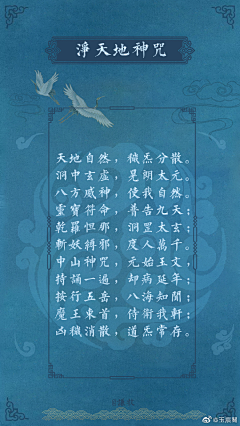 淨天地神咒
天地自然，穢炁分散。
洞中玄虛，晃朗太元。
八方威神，使我自然。
靈寶符命，普告九天；
乾羅怛那，洞罡太玄；
斬妖縛邪，度人萬千。
中山神咒，元始玉文，
持誦一遍，却病延年；
按行五岳，八海知聞；
魔王束首，侍衛我軒；
凶穢消散，道炁常存。